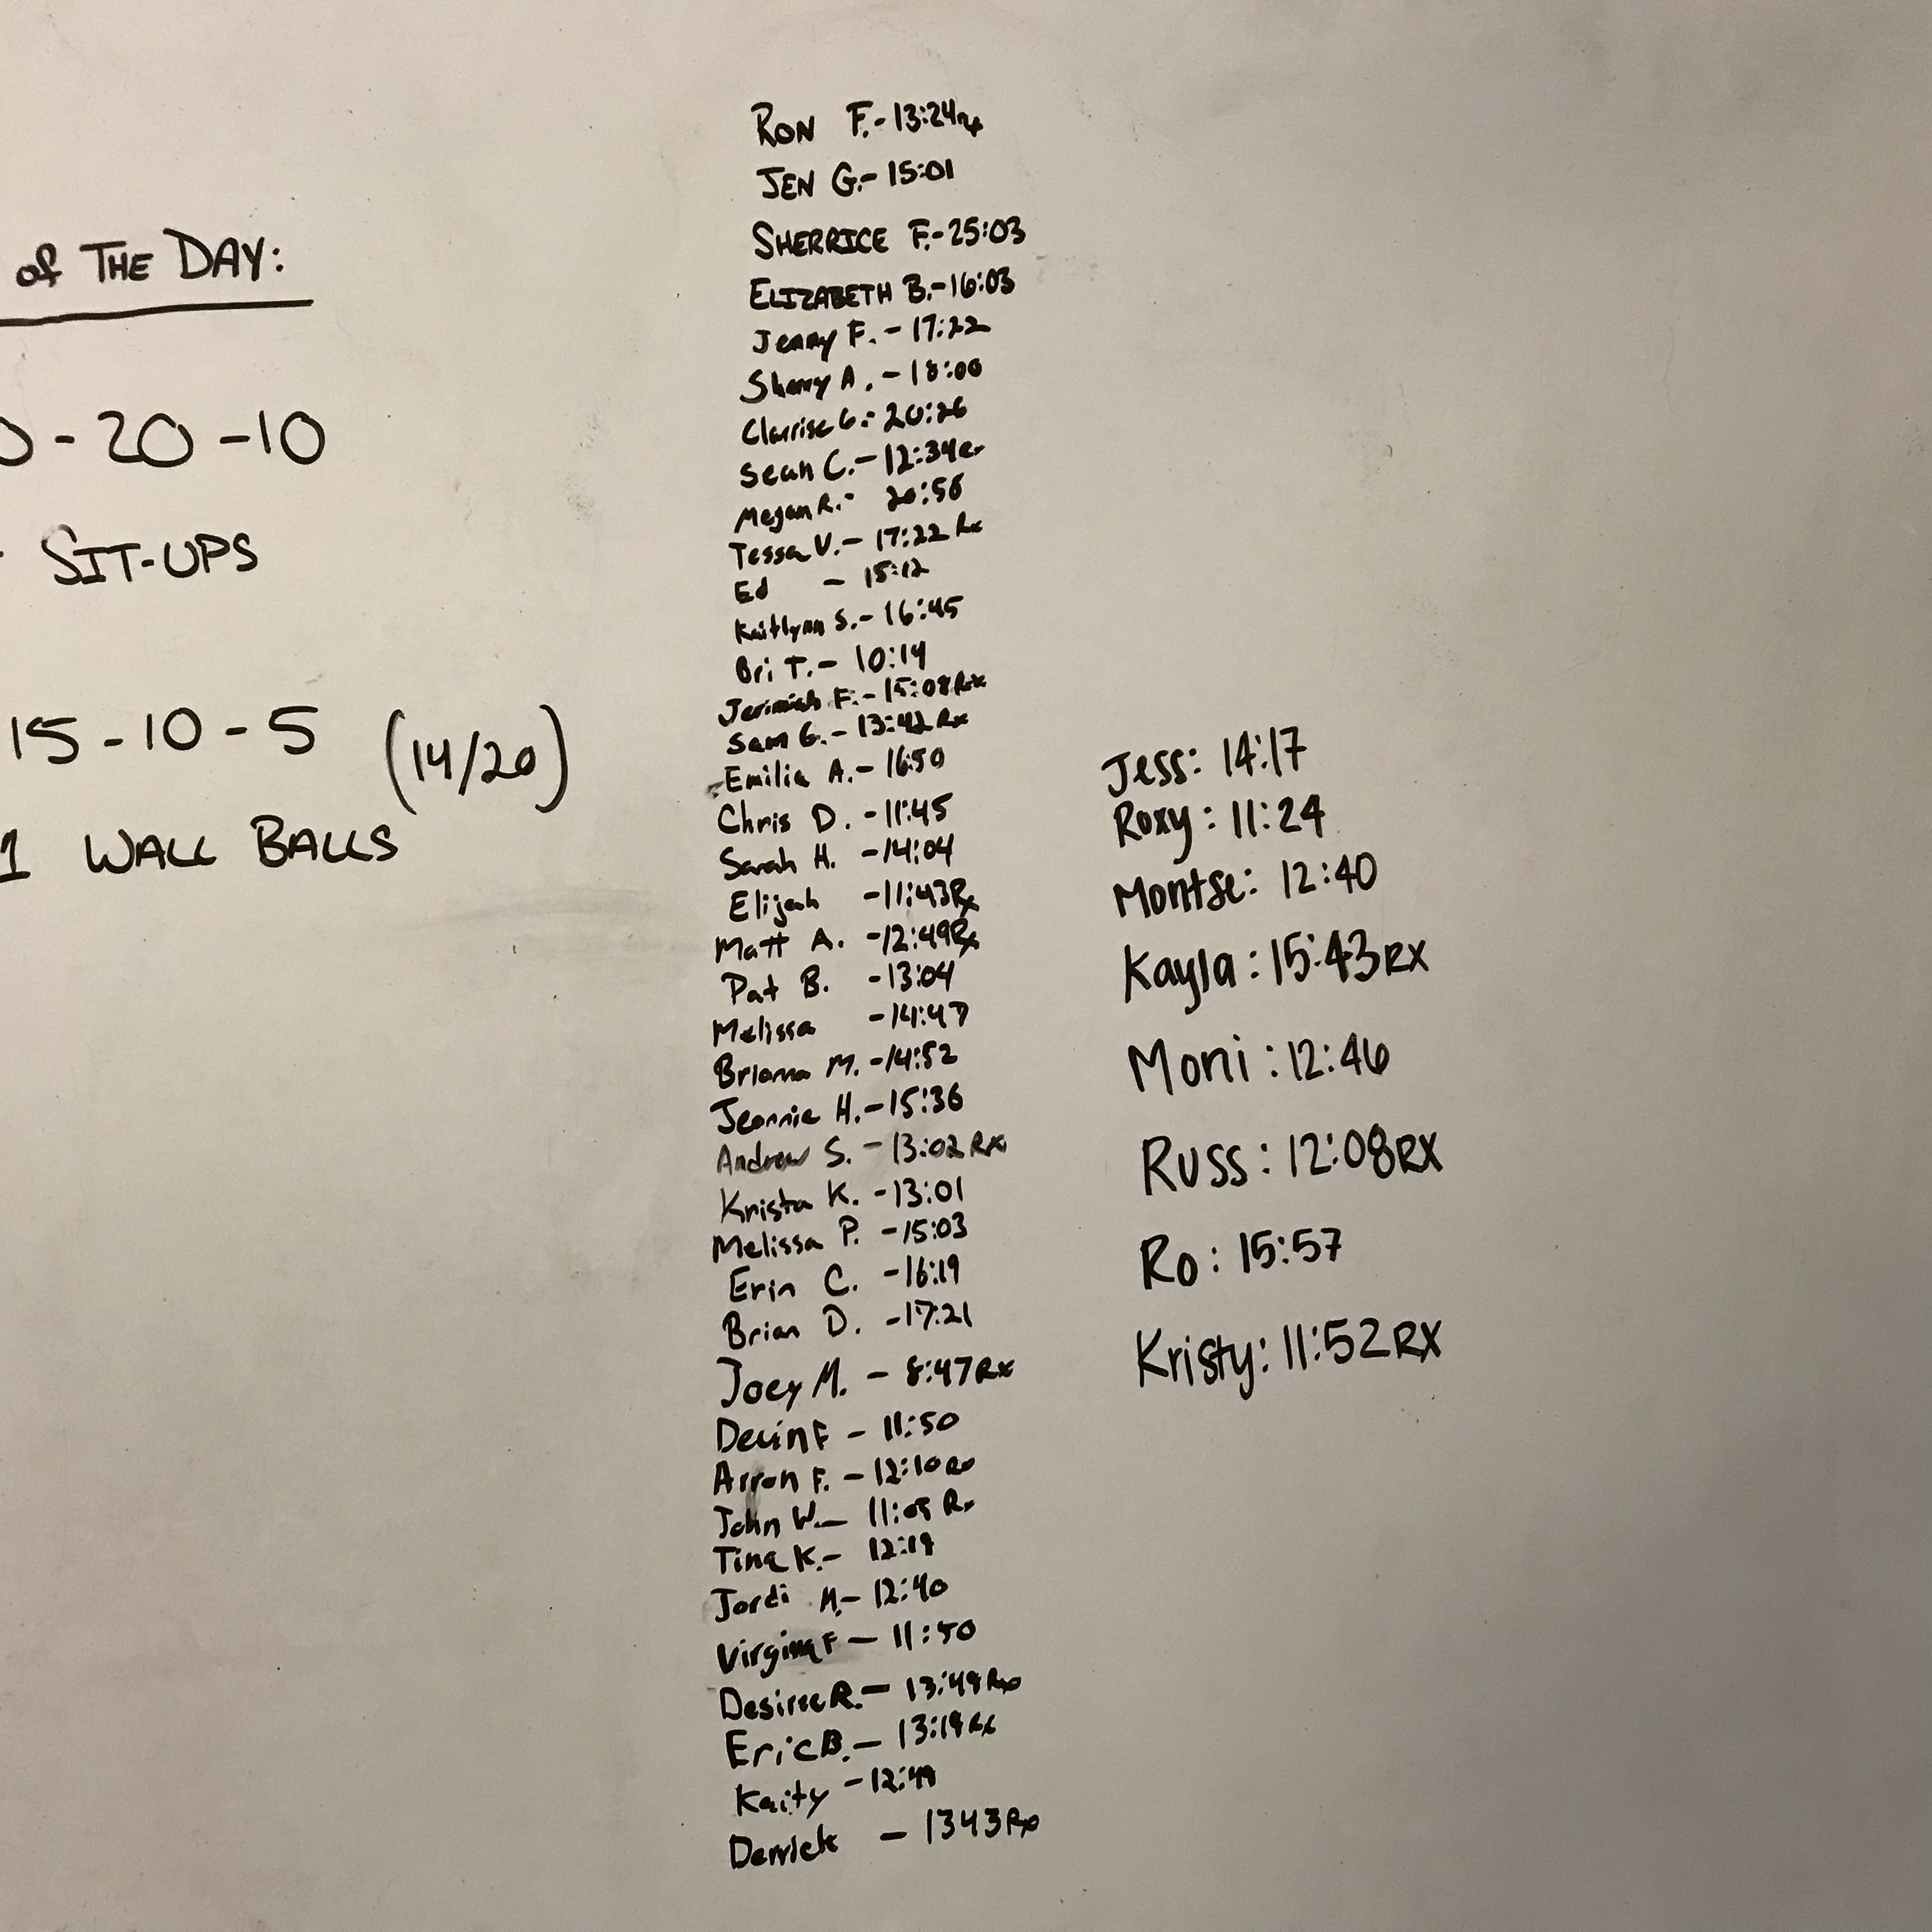 of THE DAY:
- 20 - 10
SIT-UPS
15 - 10 - 5 (14/20)
1 WALL BALLS
RON F. - 13:24 rx
JEN G. - 15:01
SHERRICE F. - 25:03
ELIZABETH B. - 16:03
Jenny F. - 17:22
Sherry A. - 18:00
Clarrise G. - 20:26
Sean C. - 12:34
Megan R. - 20:56
Tessa V. - 17:22 Rx
Ed - 15:12
Kaitlynn S. - 16:45
Bri T. - 10:14
Jerimiah F. - 15:08 Rx
Sam G. - 13:42 Rx
Emilia A. - 16:50
Chris D. - 11:45
Sarah H. - 14:04
Elijah - 11:43 Rx
Matt A. - 12:49 Rx
Pat B. - 13:04
Melissa - 14:47
Briana M. - 14:52
Jeannie H. - 15:36
Andrew S. - 13:02 Rx
Krista K. - 13:01
Melissa P. - 15:03
Erin C. - 16:19
Brian D. - 17:21
Joey M. - 8:47 Rx
Devin F - 11:50
Arron F. - 12:10 Rx
John W. - 11:09 Rx
Tina K. - 12:19
Jordi M. - 12:40
Virginia F - 11:50
Desiree R. - 13:49 Rx
Eric B. - 13:19 Rx
Kaity - 12:49
Derrick - 1343 Rx
Jess: 14:17
Roxy: 11:24
Montse: 12:40
Kayla: 15:43 RX
Moni: 12:46
Russ: 12:08 RX
Ro: 15:57
Kristy: 11:52 RX